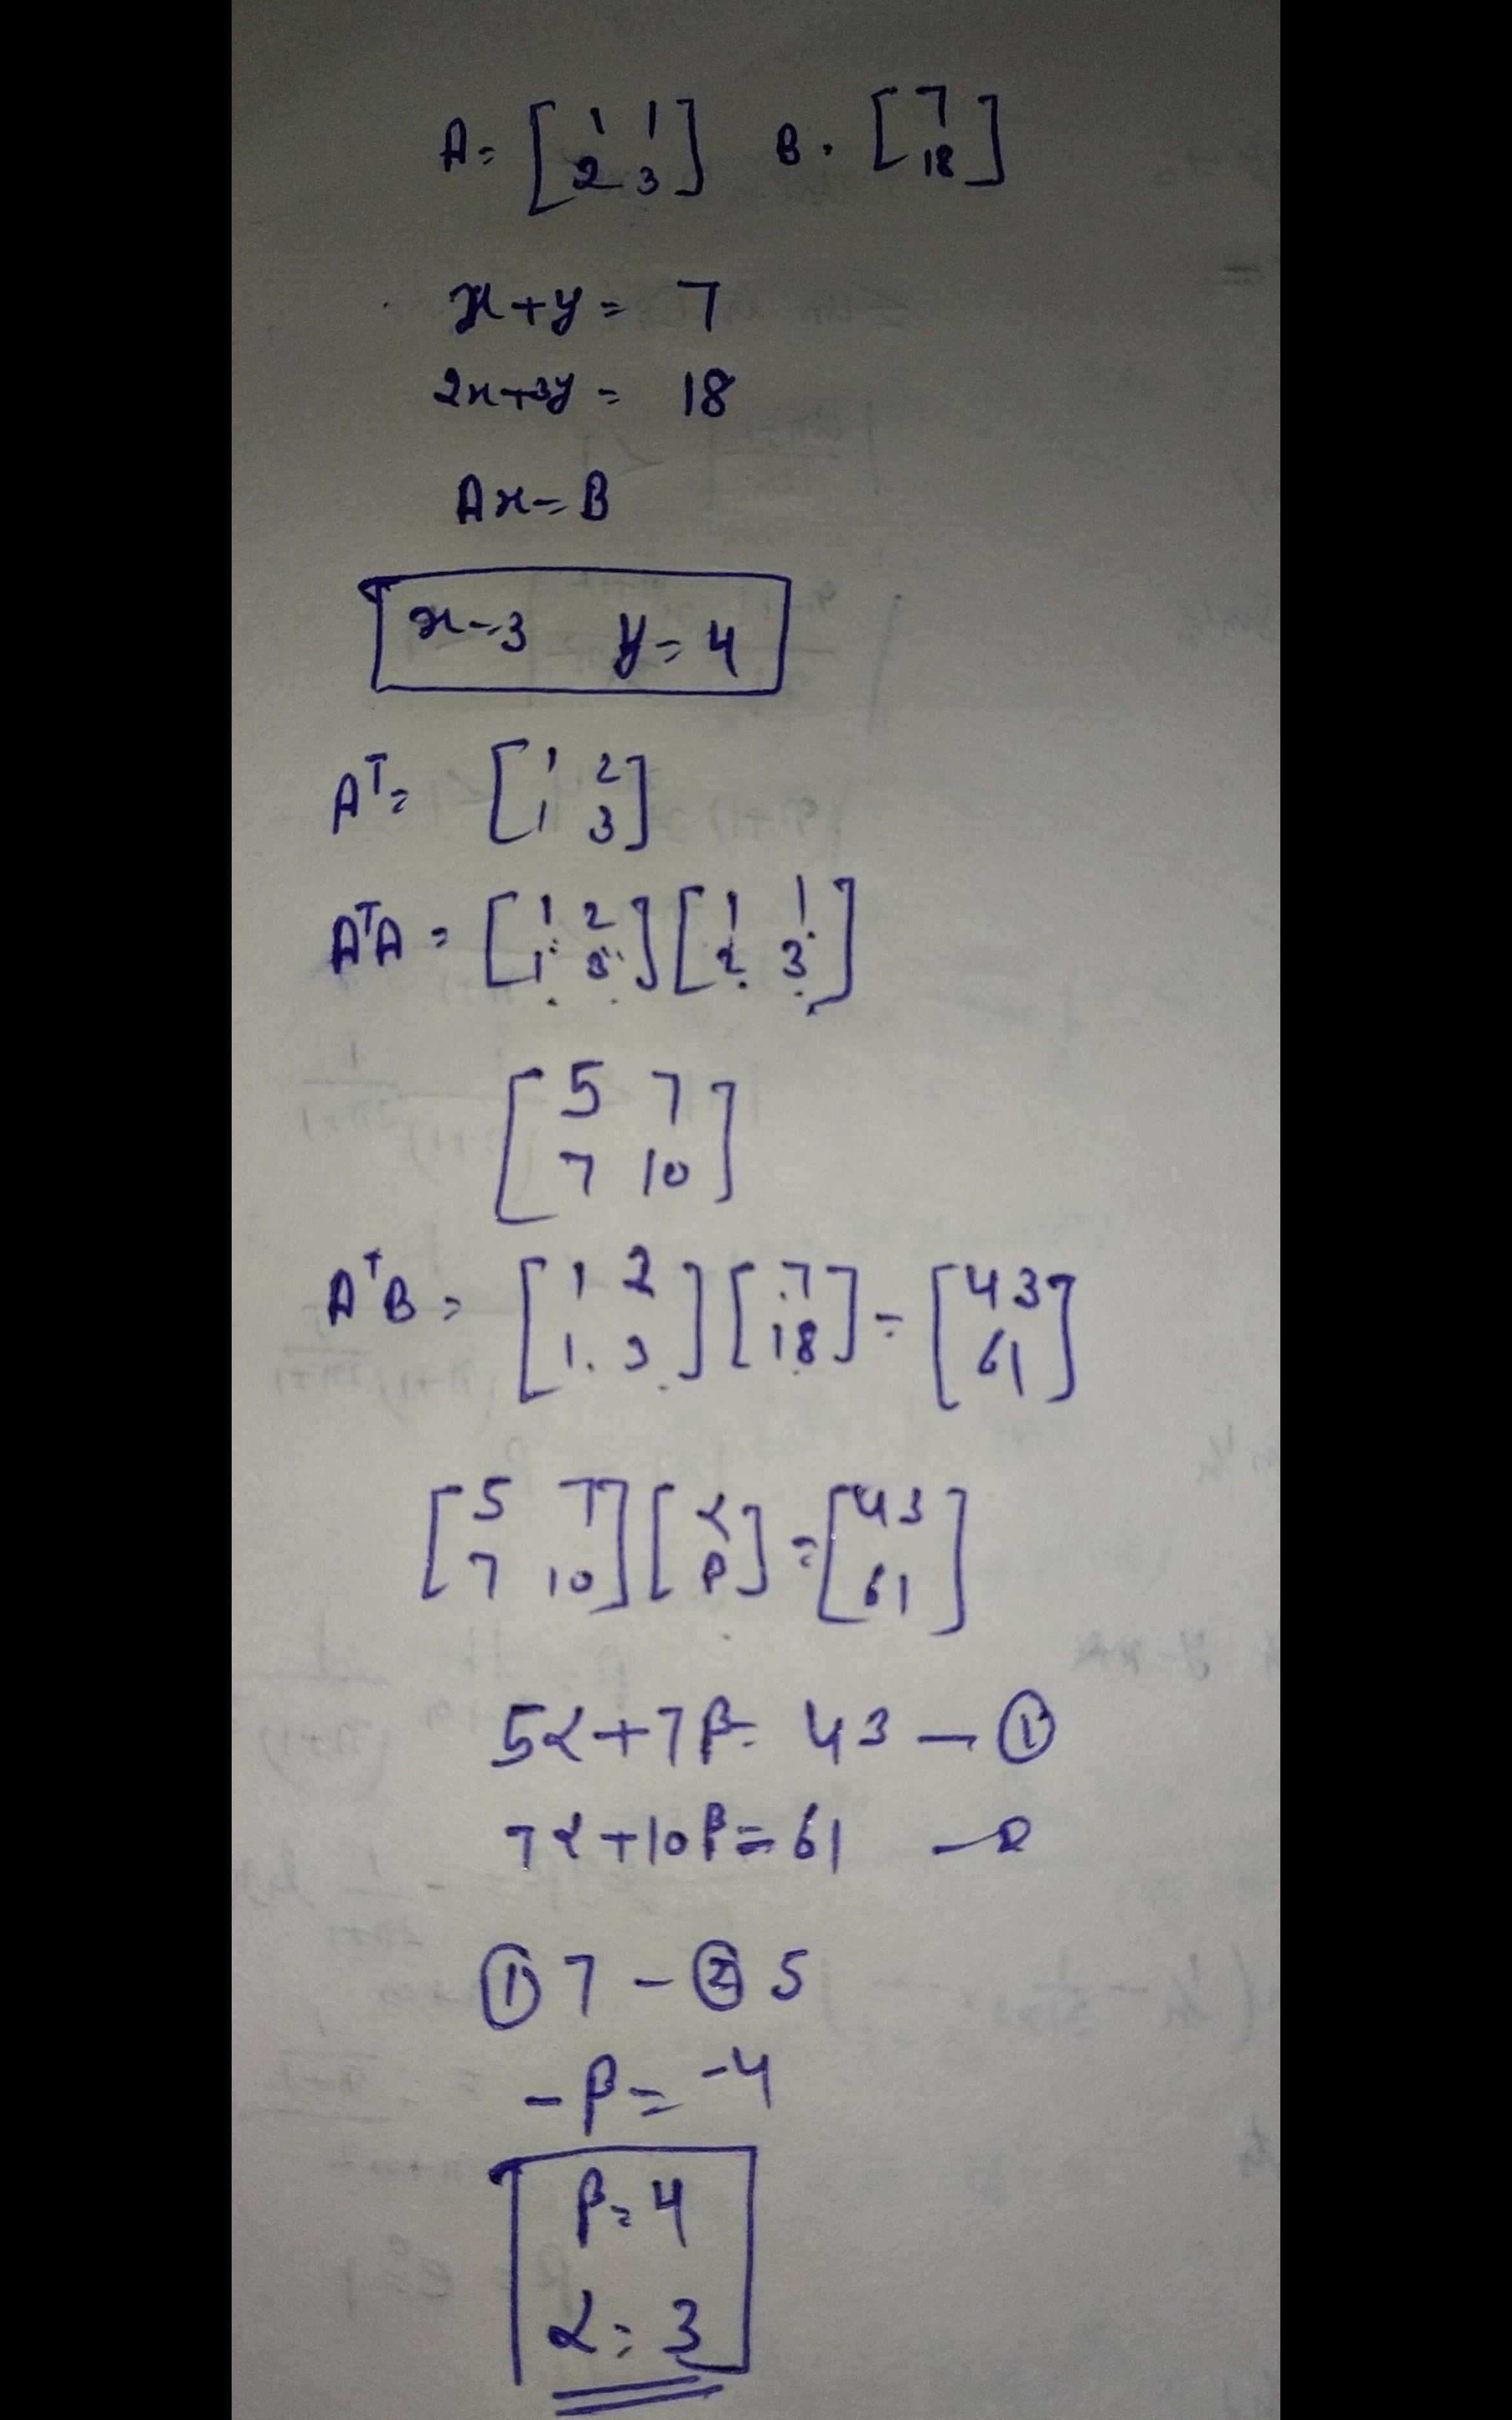 A = [1 1 2 3] B = [7 18]
x+y = 7
2x+3y = 18
Ax = B
x=3 y=4
Aᵀ = [1 2 1 3]
AᵀA = [1 2 1 3] [1 1 2 3]
[5 7 7 10]
AᵀB = [1 2 1 3] [7 18] = [43 61]
[5 7 7 10] [α β] = [43 61]
5α+7β = 43 — ①
7α+10β = 61 — 2
① 7 - ② 5
-β = -4
β = 4
α = 3